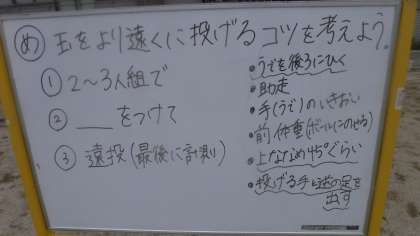 め 玉をより遠くに投げるコツを考えよう。
① 2〜3人組で
② ___をつけて
③ 遠投(最後に計測)
・うでを後ろにひく
・助走
・手(うで)のいきおい
・前体重(ボールにのせる)
・上ななめ45°ぐらい
・投げる手と逆の足を
出す